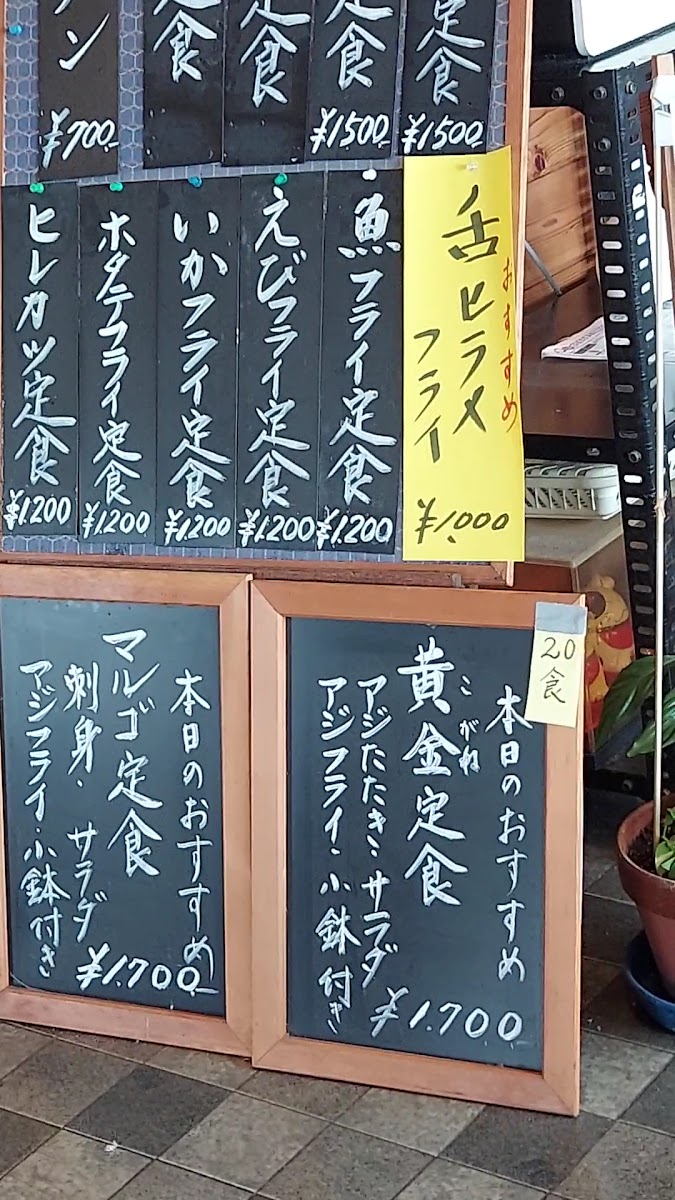 定食
¥1500
定食
¥1500
定食
定食
ン
¥700
おすすめ
舌ヒラメ
フライ
¥1,000
魚フライ定食
¥1,200
えびフライ定食
¥1,200
いかフライ定食
¥1,200
ホタテフライ定食
¥1,200
ヒレカツ定食
¥1,200
20食
本日のおすすめ
黄金定食
こがね
アジたたき・サラダ
アジフライ・小鉢付き
¥1,700
本日のおすすめ
マルゴ定食
刺身・サラダ
アジフライ・小鉢付き
¥1,700